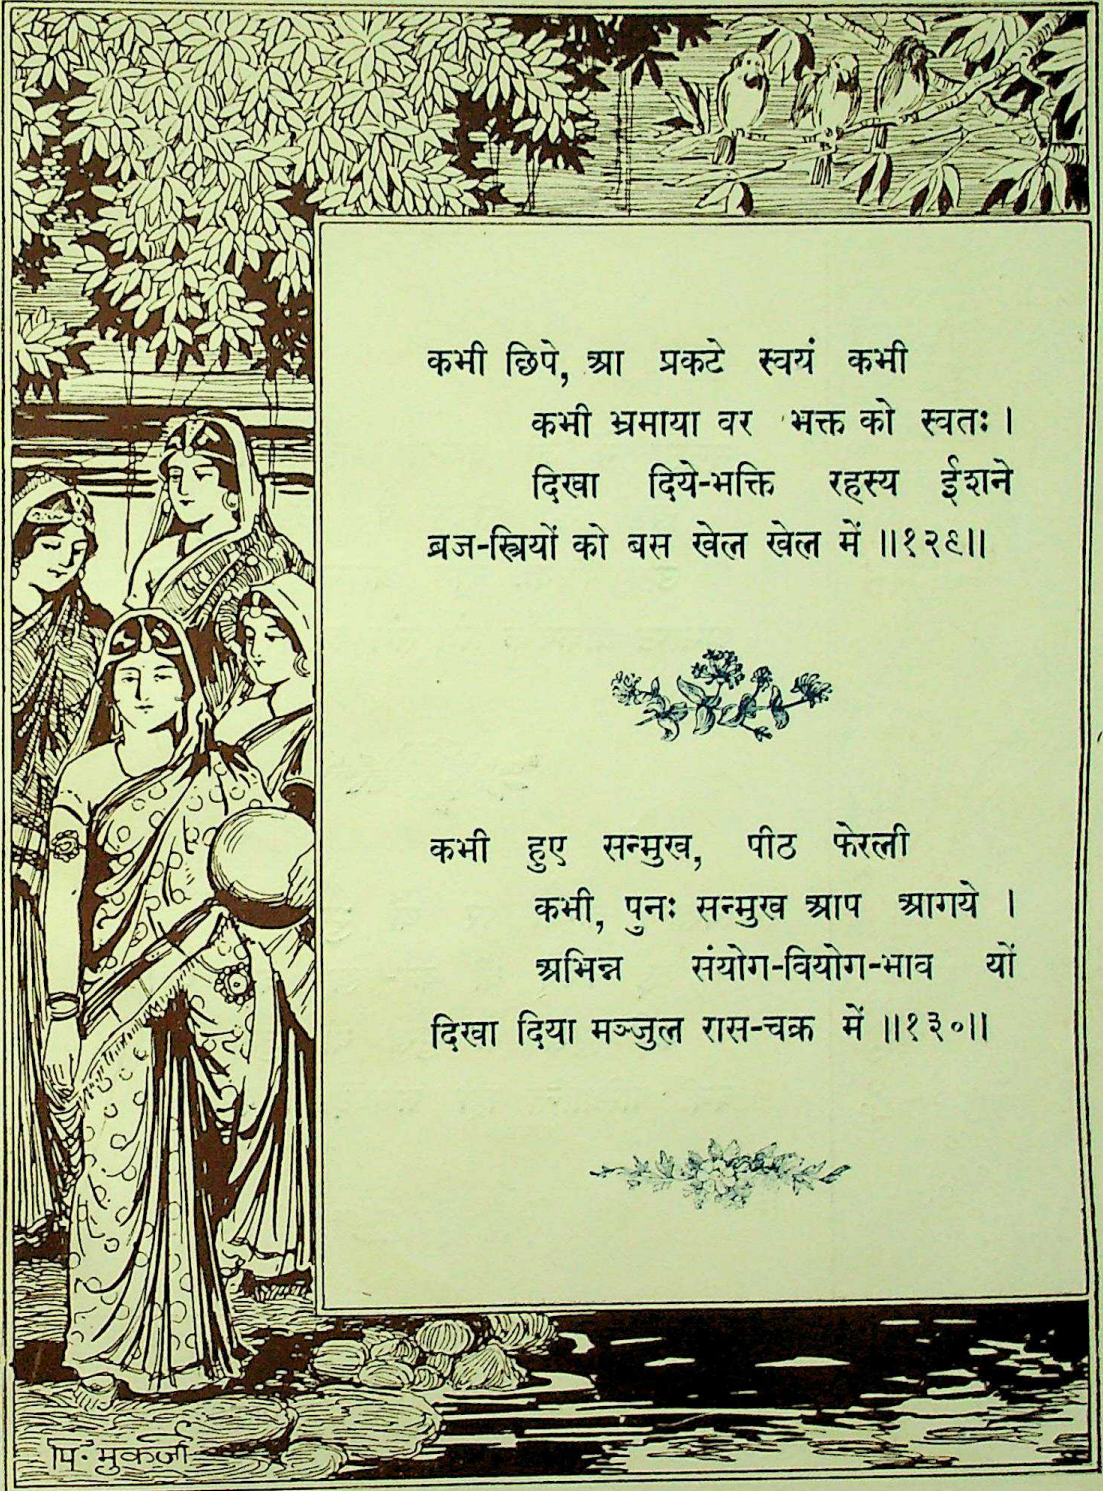 कभी छिपे, आ प्रकटे स्वयं कभी
कभी भ्रमाया वर भक्त को स्वतः ।
दिखा दिये-भक्ति रहस्य ईशने
ब्रज-स्त्रियों को बस खेल खेल में ॥१२९॥
कभी हुए सन्मुख, पीठ फेरली
कभी, पुनः सन्मुख आप आगये ।
अभिन्न संयोग-वियोग-भाव यों
दिखा दिया मञ्जुल रास-चक्र में ॥१३०॥
पि. मुकर्जी